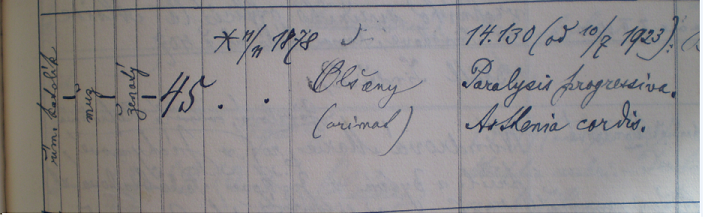 řím. katolík
muž
ženatý
45
* 11/11 1878 v
Olšany
(orimat)
14.130 (od 10/7 1923):
Paralysis progressiva.
Asthenia cordis.